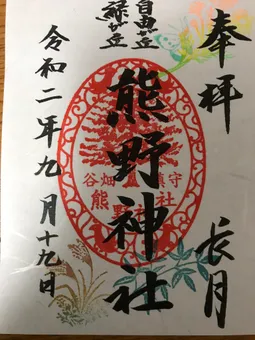 奉拝
長月
自由ヶ丘
緑ヶ丘
熊野神社
谷畑 鎮守
熊野神社
令和二年九月十九日